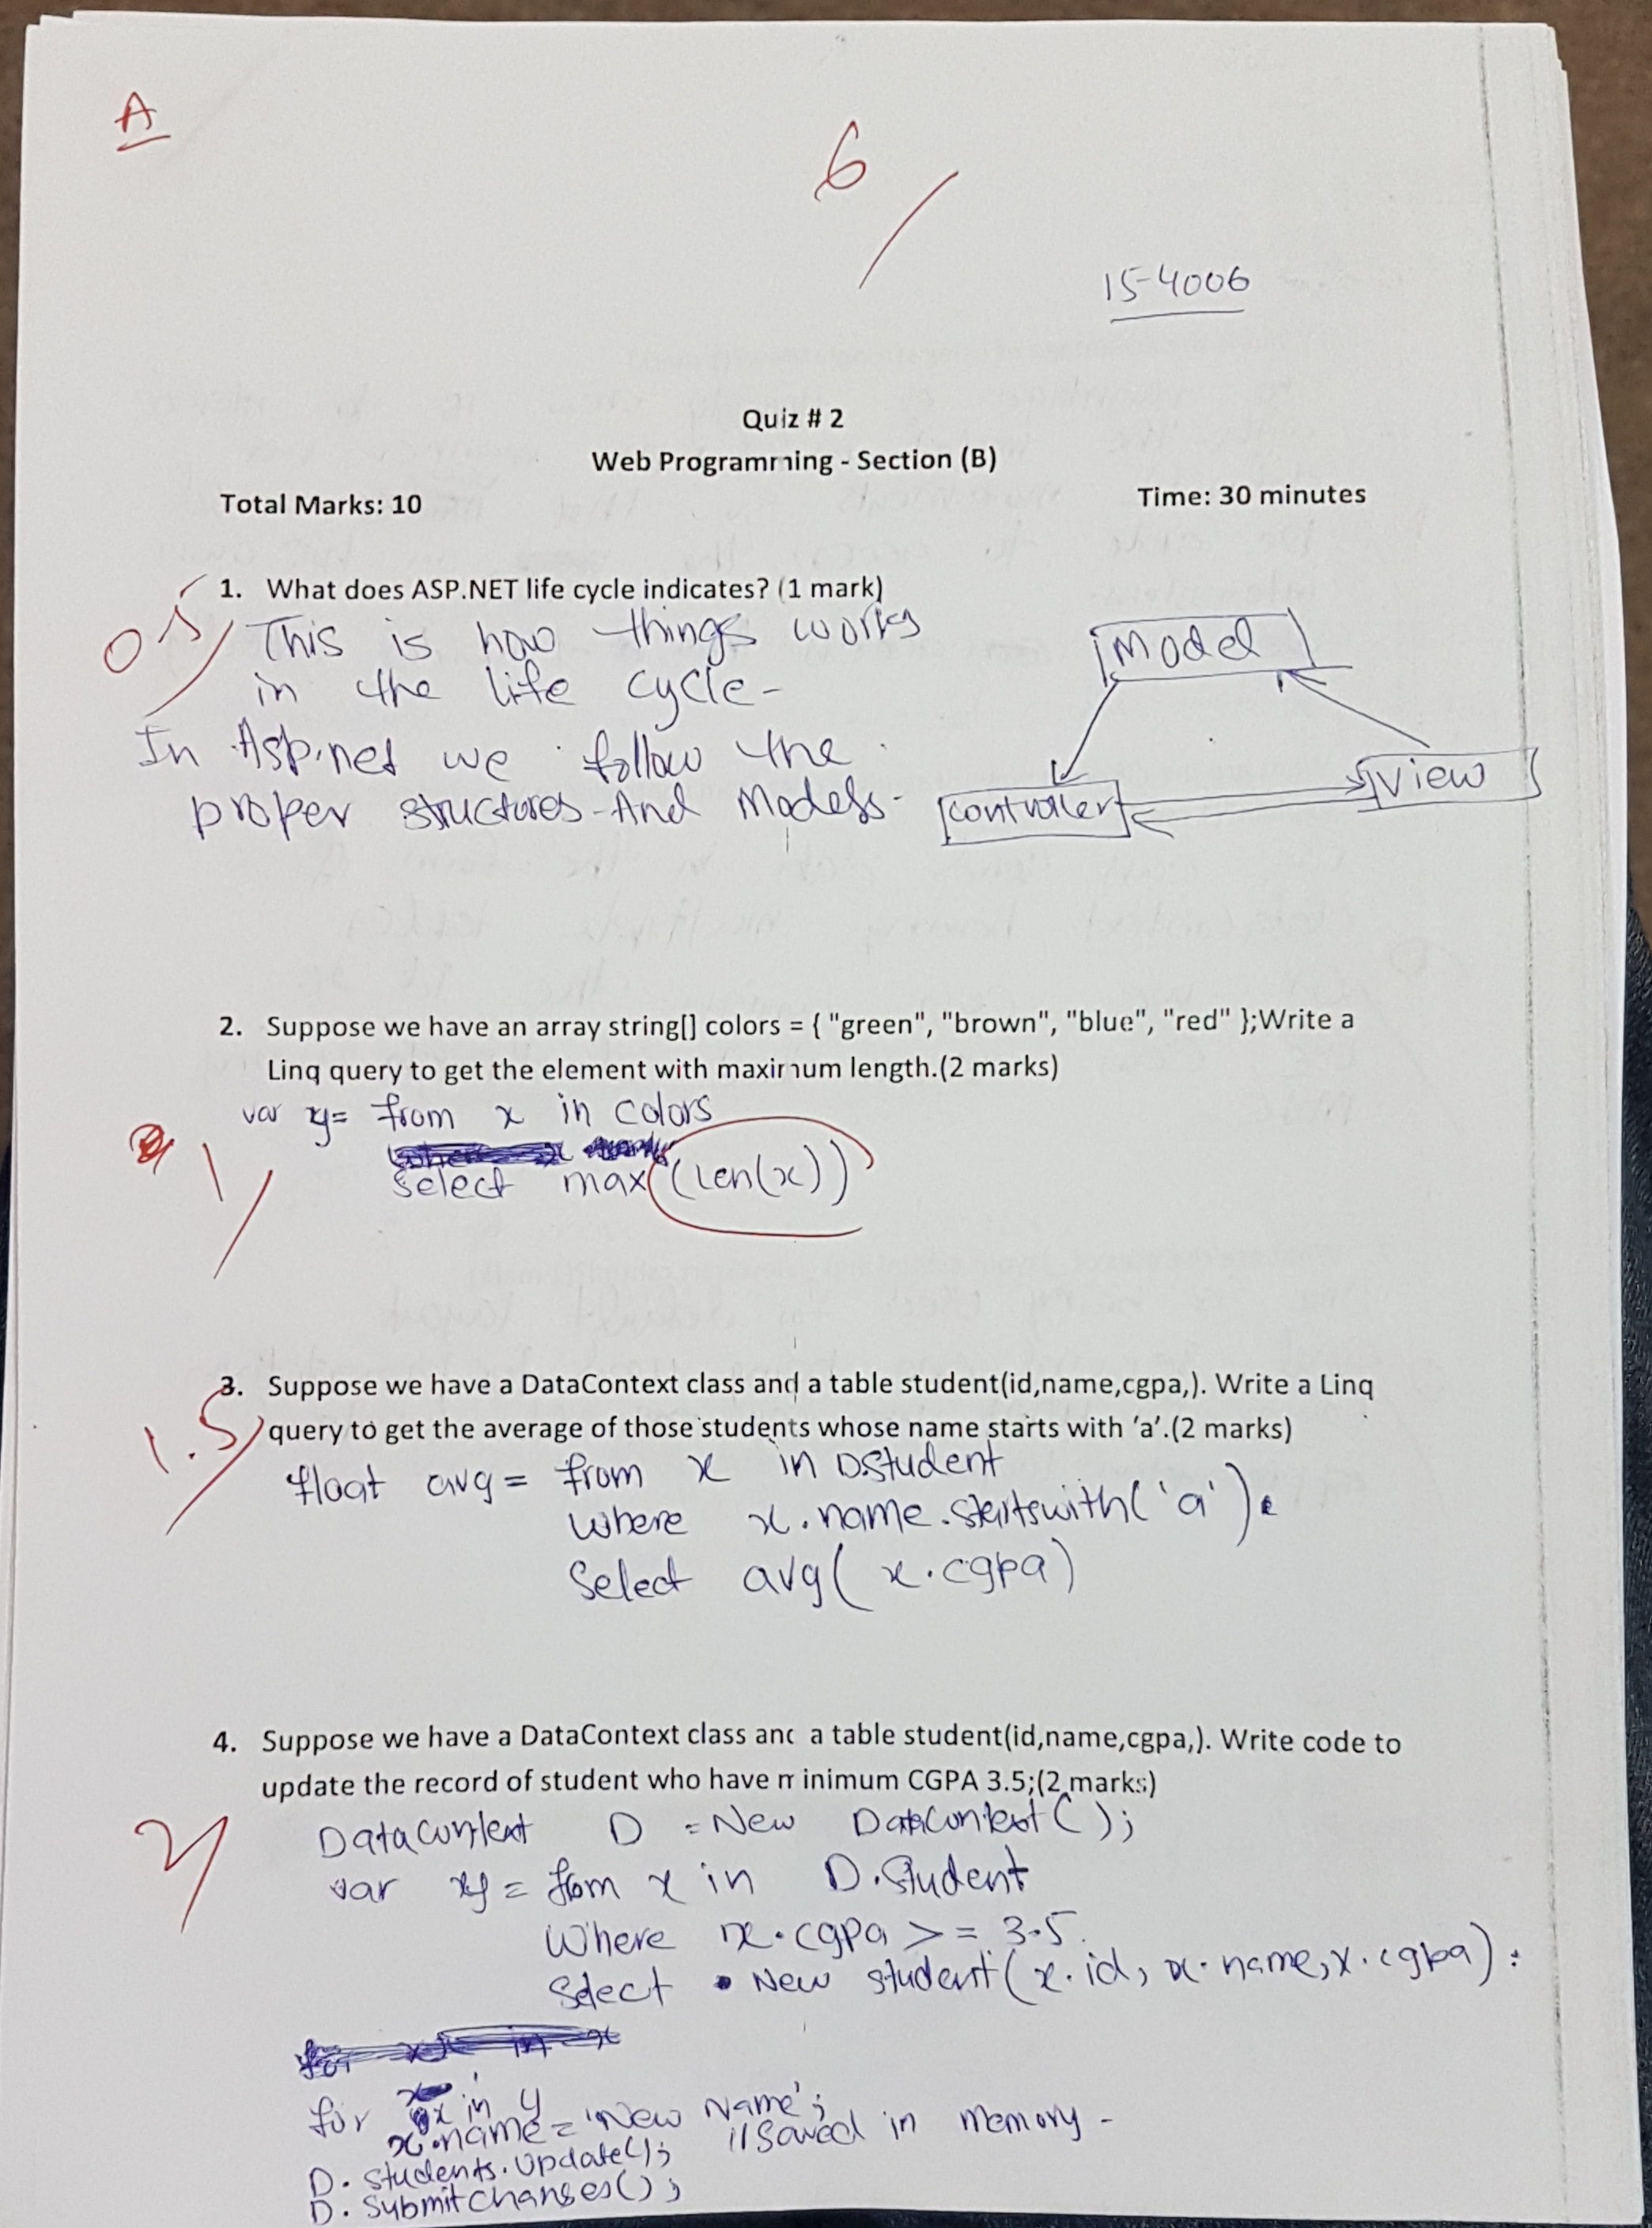 A
6
15-4006
Quiz # 2
Web Programming - Section (B)
Total Marks: 10
Time: 30 minutes
1. What does ASP.NET life cycle indicates? (1 mark)
0.5
This is how things works
in the life cycle-
In Asp.net we follow the
proper structures-And Models-
Model
Controller
View
2. Suppose we have an array string[] colors = { "green", "brown", "blue", "red" };Write a
Linq query to get the element with maximum length.(2 marks)
var y= from x in colors
1
Select max((len(x))
3. Suppose we have a DataContext class and a table student(id,name,cgpa,). Write a Linq
query to get the average of those students whose name starts with 'a'.(2 marks)
1.5
float avg = from x in D.Student
where x.name.startswith('a').
Select avg( x.cgpa)
4. Suppose we have a DataContext class and a table student(id,name,cgpa,). Write code to
update the record of student who have minimum CGPA 3.5;(2 marks)
2
DataContext D = New DataContext();
var y = from x in D.Student
Where x.cgpa >= 3.5
Select New student(x.id, x.name,x.cgpa):
for x in y
x.name = 'New Name'; //Saved in memory-
D. Students.Update();
D. SubmitChanges();